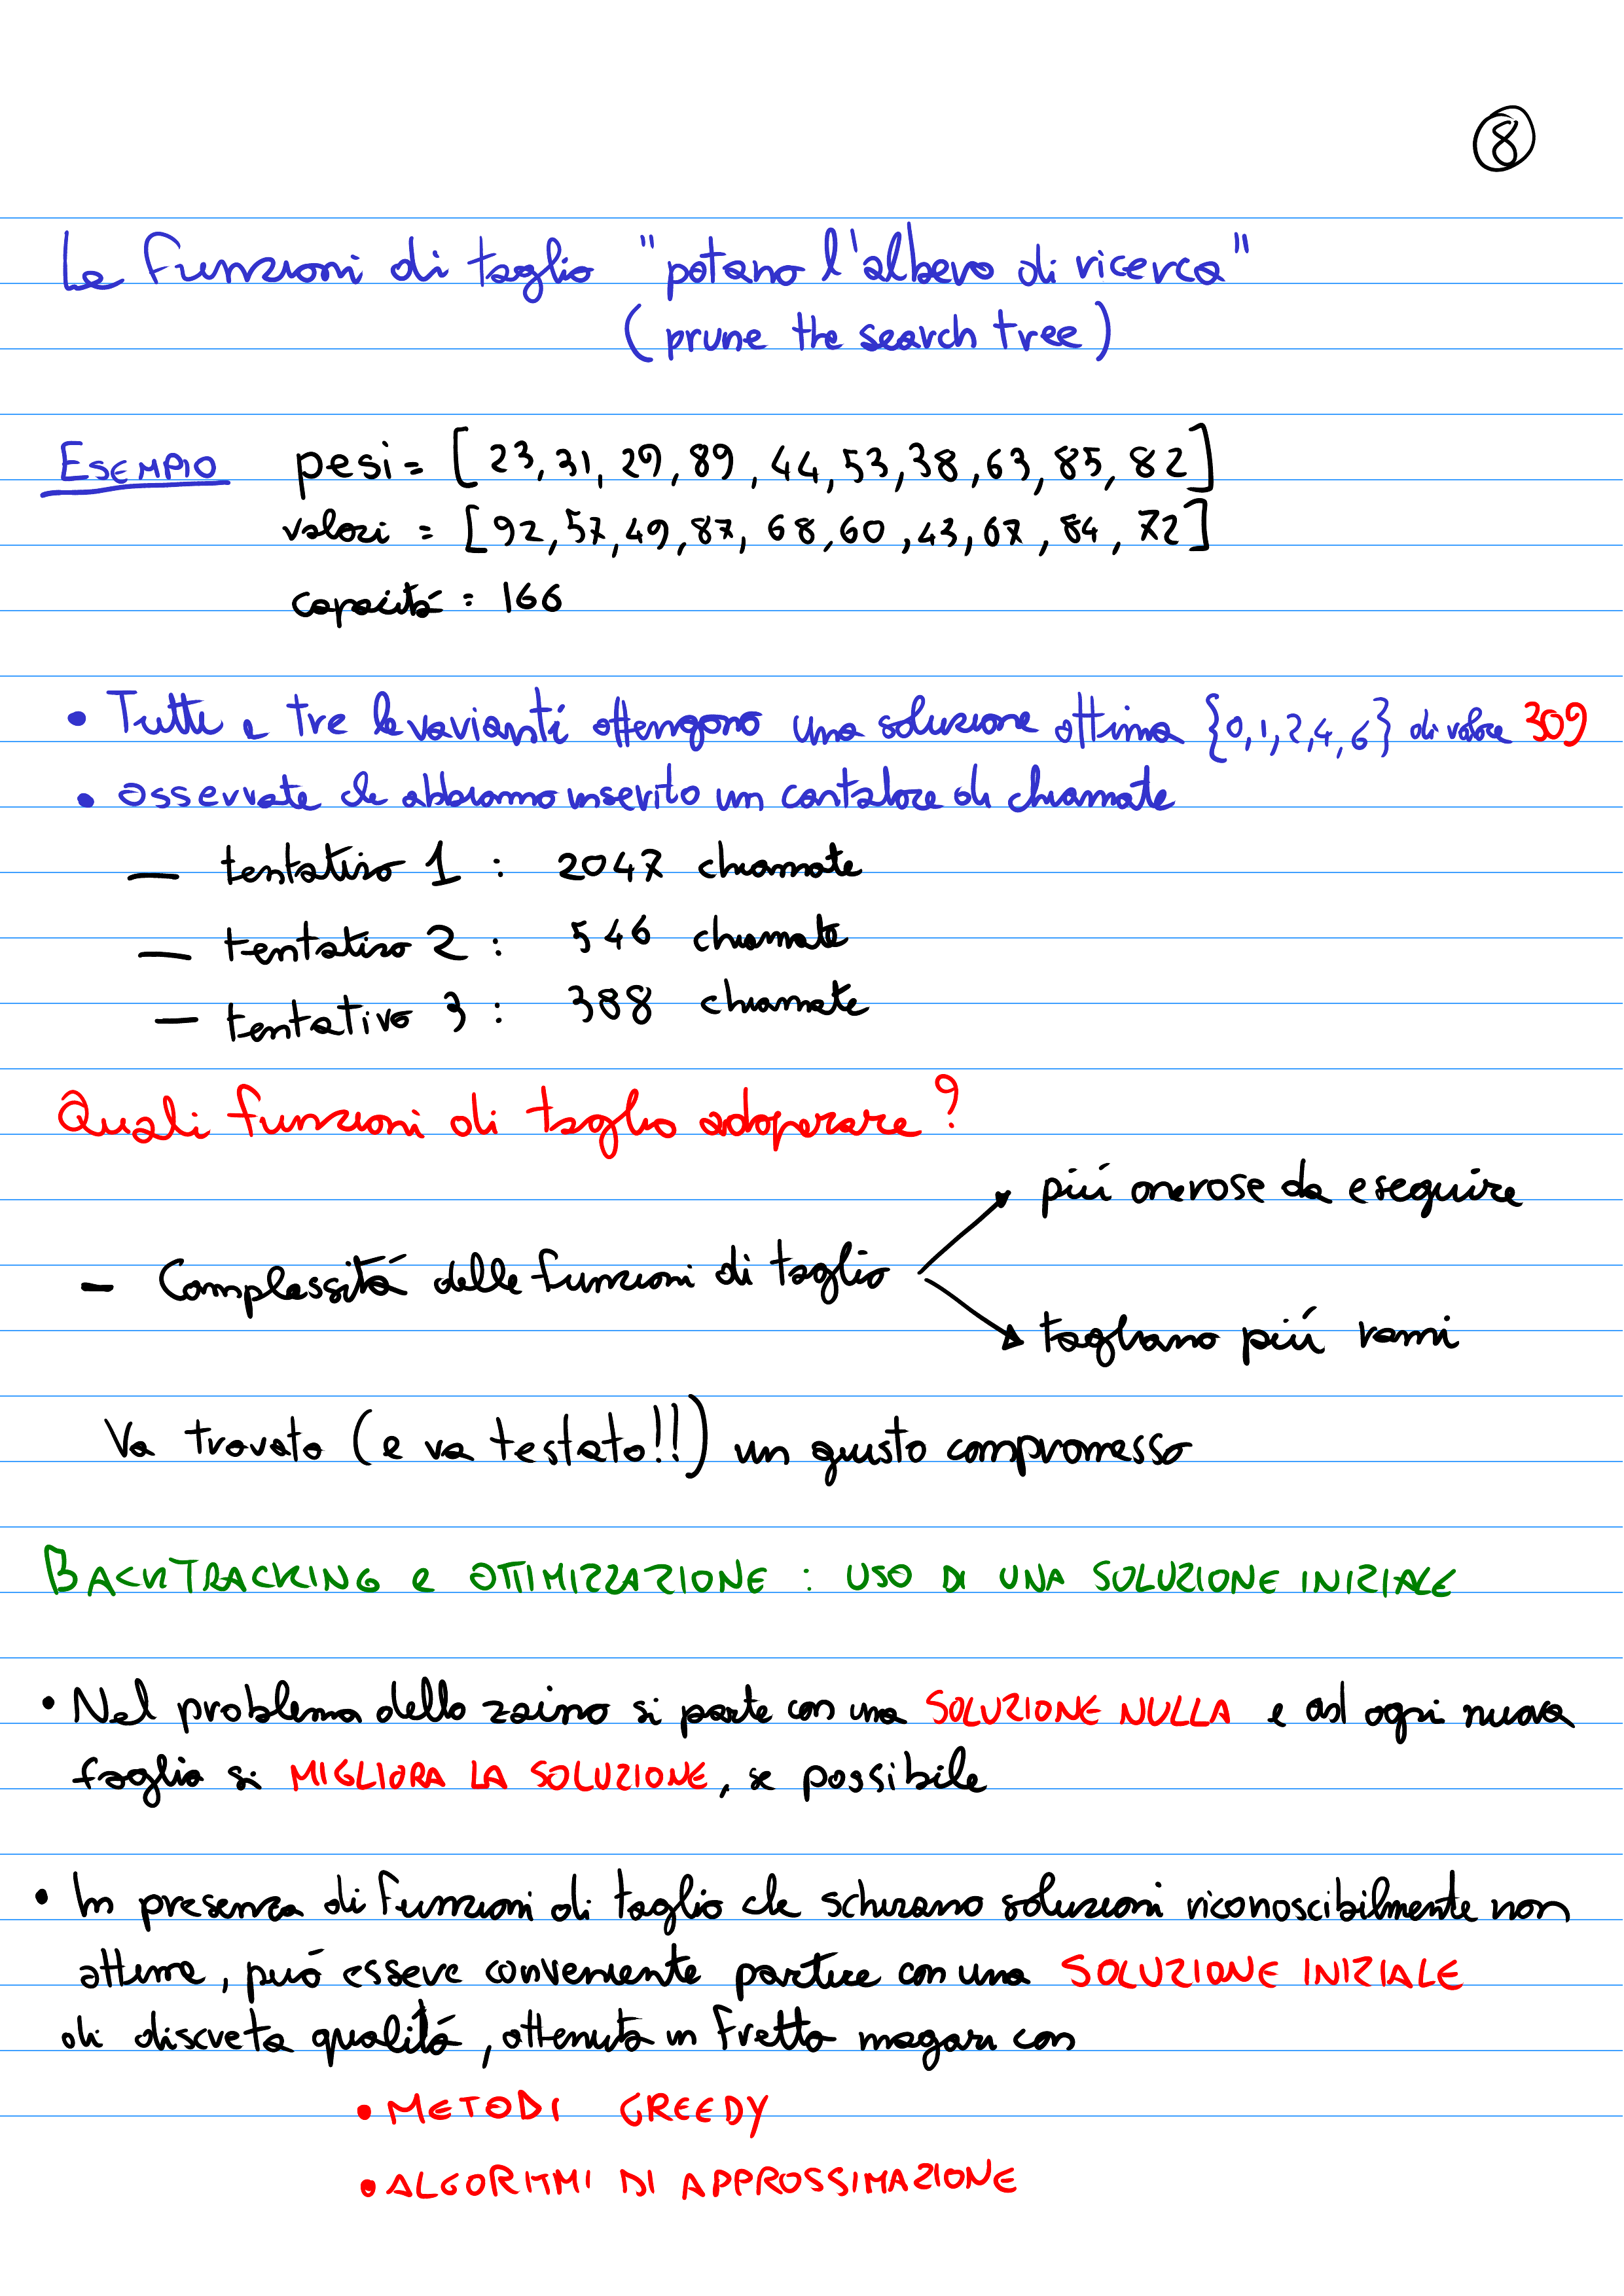 8
Le funzioni di taglio "potano l'albero di ricerca"
(prune the search tree)
ESEMPIO pesi = [23, 31, 29, 89, 44, 53, 38, 63, 85, 82]
valori = [92, 57, 49, 87, 68, 60, 43, 67, 84, 72]
capacitá = 166
• Tutte e tre le varianti ottengono una soluzione ottima {0,1,2,4,6} di valore 309
• osservate che abbiamo inserito un contatore di chiamate
— tentativo 1 : 2047 chiamate
— tentativo 2 : 546 chiamate
— tentativo 3 : 388 chiamate
Quali funzioni di taglio adoperare?
più onerose da eseguire
- Complessitá delle funzioni di taglio
tagliano piú rami
Va trovato (e va testato!!) un giusto compromesso
BACKTRACKING e OTTIMIZZAZIONE : USO DI UNA SOLUZIONE INIZIALE
• Nel problema dello zaino si parte con una SOLUZIONE NULLA e ad ogni nuova
foglia si MIGLIORA LA SOLUZIONE, se possibile
• In presenza di funzioni di taglio che schivano soluzioni riconoscibilmente non
ottime, puó essere conveniente partire con una SOLUZIONE INIZIALE
di discreta qualitá, ottenuta in fretta magari con
• METODI GREEDY
• ALGORITMI DI APPROSSIMAZIONE